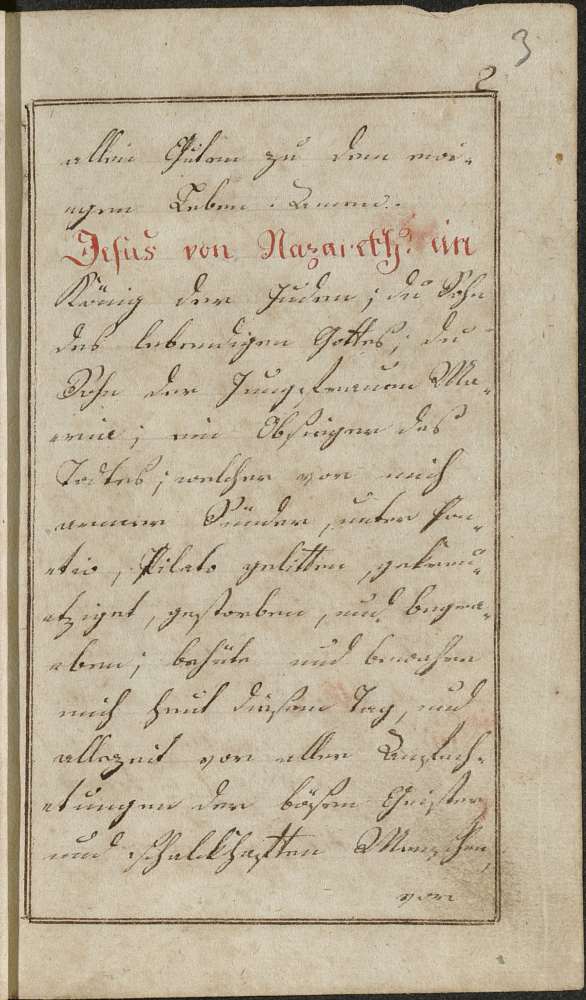 3
2
allem Guten zu dem ewi-
igem Leben. Amen.
Jesus von Nazareth. ein
König der Juden; du Sohn
des lebendigen Gottes; du
Sohn der Jungefrauen Ma-
aria; ein Obsieger des
Todtes; welcher vor mich
armer Sünder, unter Pon-
ntio, Pilato gelitten, gekreu-
utziget, gestorben, und begra-
aben; behüte und bewahre
mich heut diesen Tag, und
allezeit vor allen Anfech-
tungen der bößen Geister
und schalckhafften Menschen,
vor